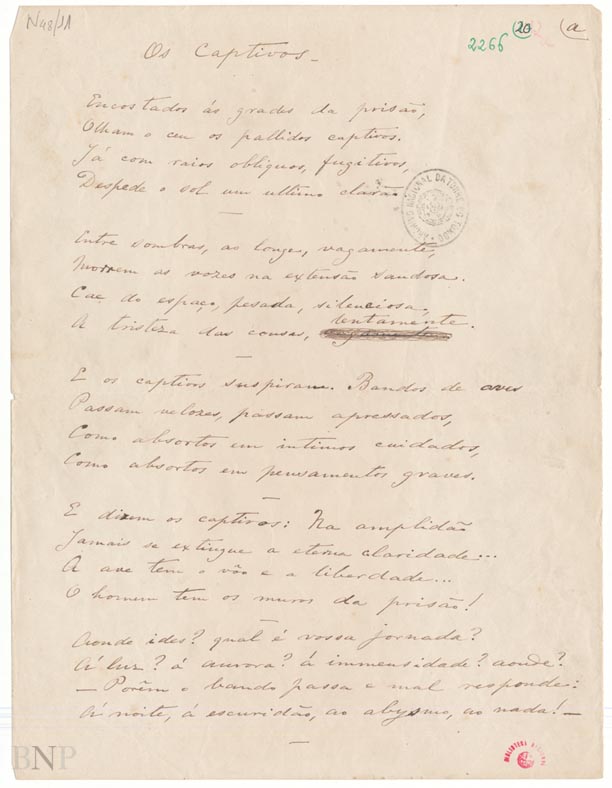 N48/J1
2266
20
a
Os Captivos_
Encostados ás grades da prisão,
Olham o ceu os pallidos captivos.
Já com raios obliquos, fugitivos,
Despede o sol um ultimo clarão.
Entre sombras, ao longe, vagamente,
Morrem as vozes na extensão saudosa.
Cae do espaço, pesada, silenciosa,
A tristeza das cousas, lentamente.
E os captivos suspiram. Bandos de aves
Passam velozes, passam apressados,
Como absortos em intimos cuidados,
Como absortos em pensamentos graves.
E dizem os captivos: Na amplidão
Jamais se extingue a eterna claridade...
A ave tem o vôo e a liberdade...
O homem tem os muros da prisão!
Aonde ides? qual é vossa jornada?
Á luz? á aurora? á immensidade? aonde?
— Porém o bando passa e mal responde:
Á noite, á escuridão, ao abysmo, ao nada! —
BNP
BIBLIOTECA NACIONAL